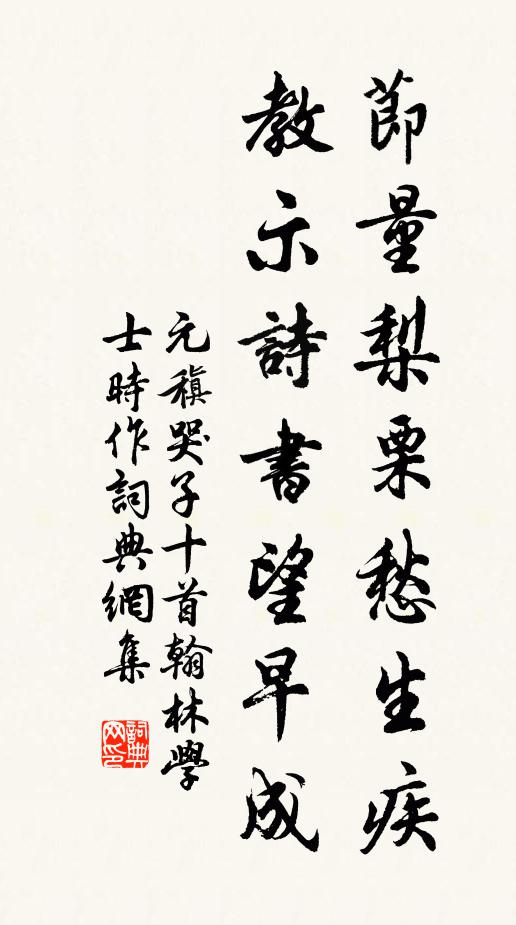 節量梨栗愁生疾
教示詩書望早成
元稹哭子十首翰林學
士時作詞典網集
詞典
网印